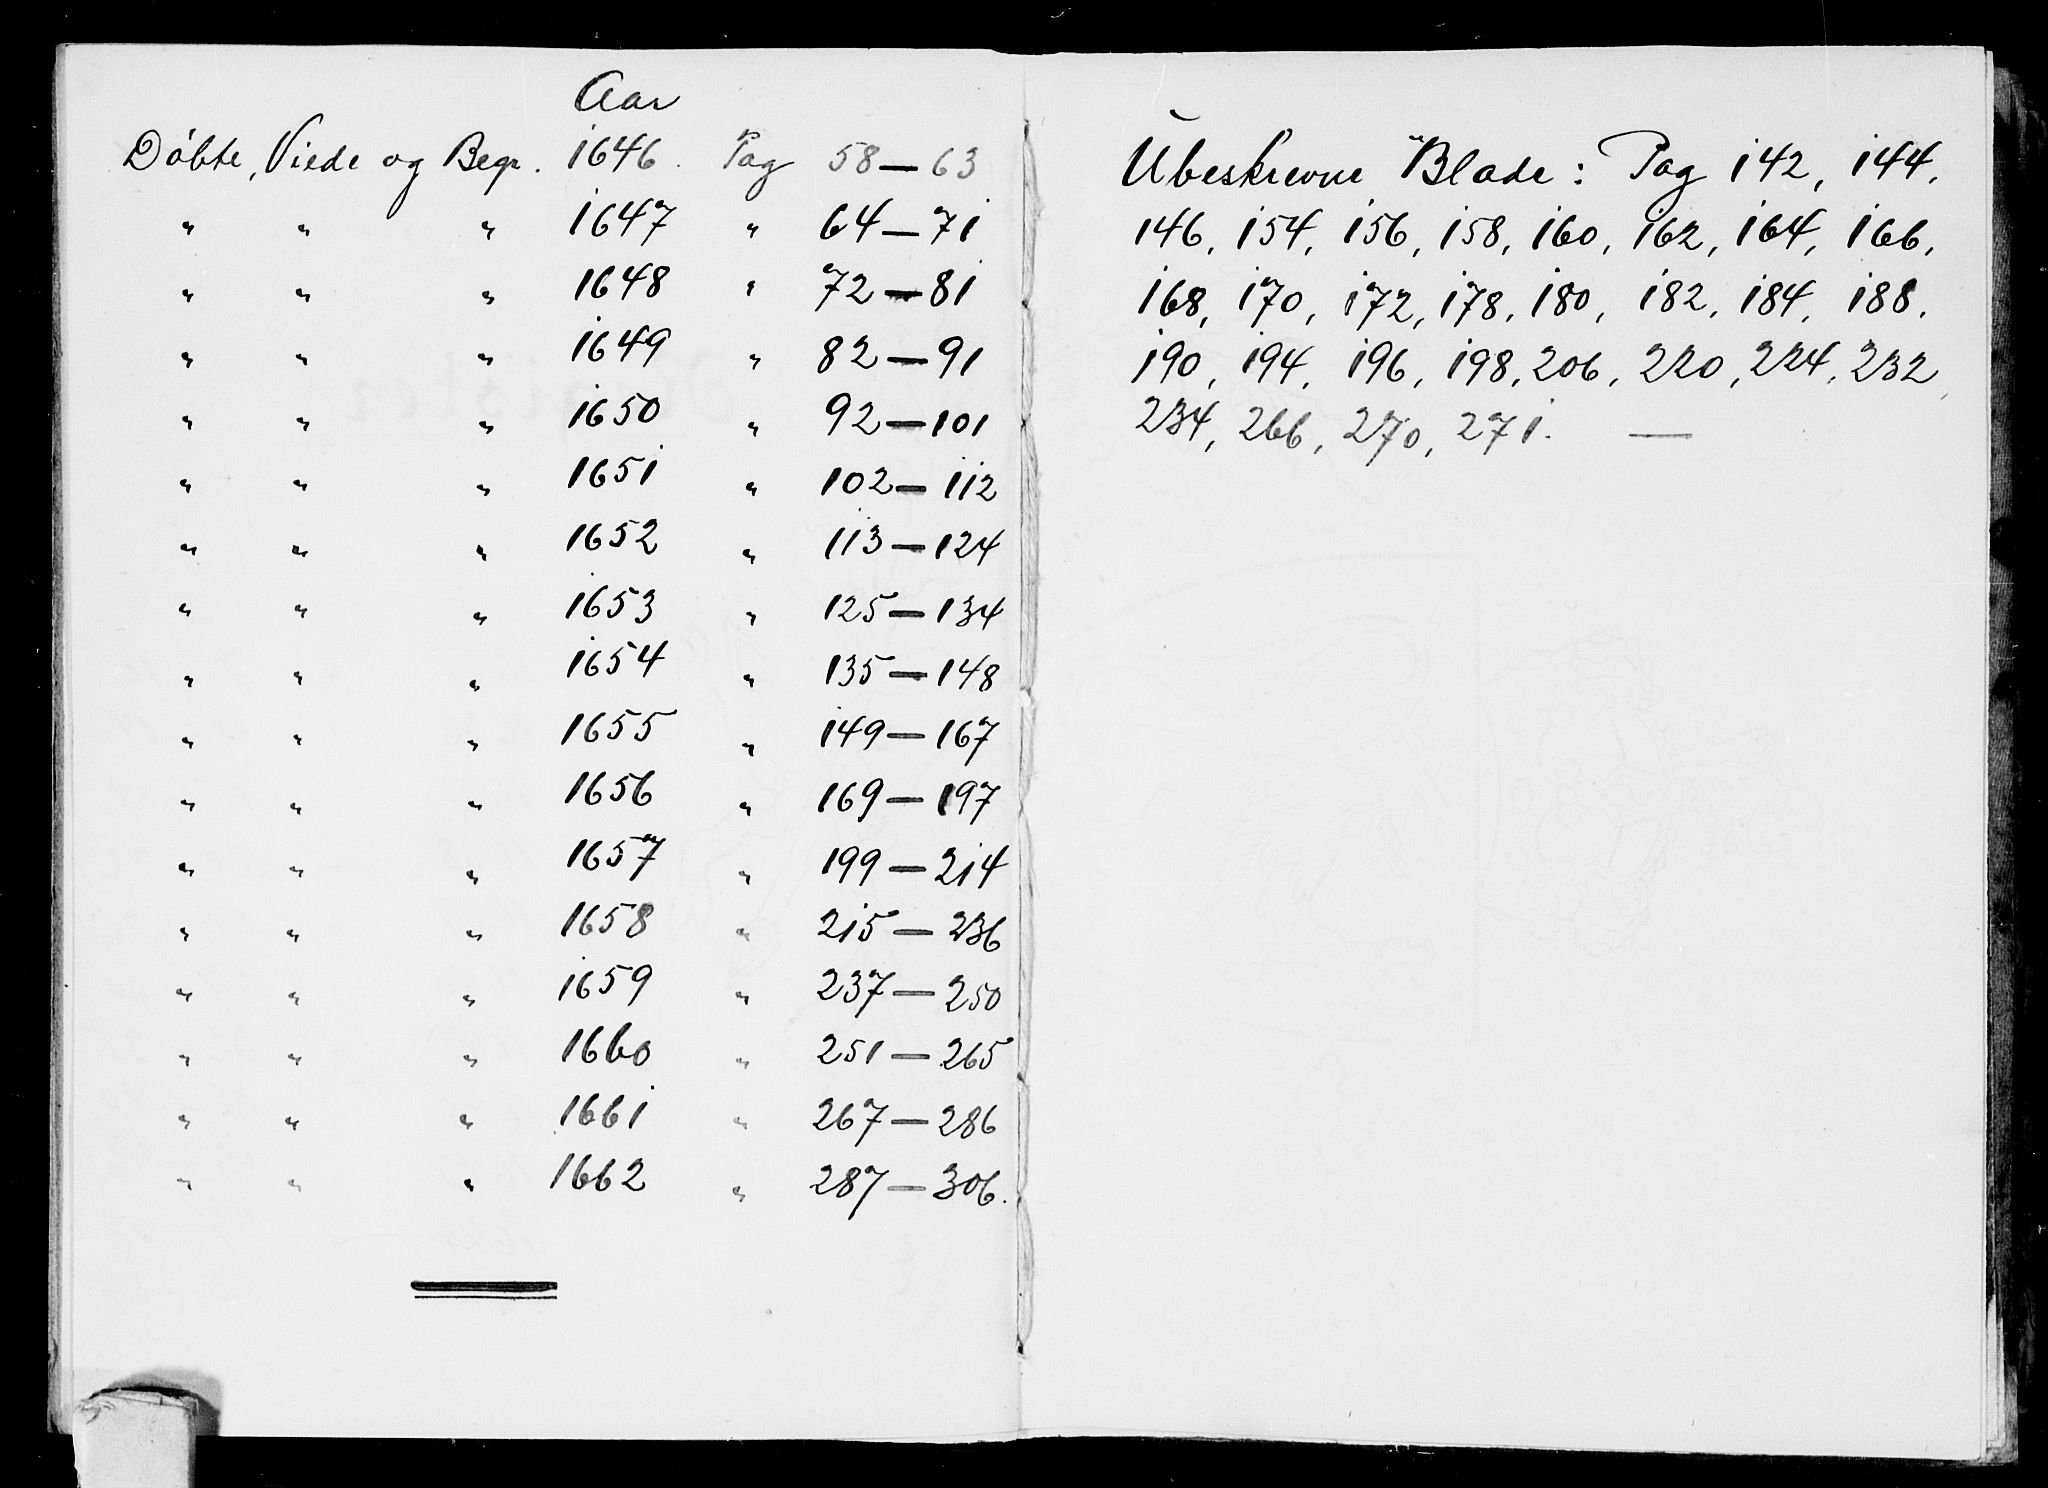 Aar
Döbte, Viede og Begr. 1646. Pag 58 — 63
" " " 1647 " 64 — 71
" " " 1648 " 72 — 81
" " " 1649 " 82 — 91
" " " 1650 " 92 — 101
" " " 1651 " 102 — 112
" " " 1652 " 113 — 124
" " " 1653 " 125 — 134
" " " 1654 " 135 — 148
" " " 1655 " 149 — 167
" " " 1656 " 169 — 197
" " " 1657 " 199 — 214
" " " 1658 " 215 — 236
" " " 1659 " 237 — 250
" " " 1660 " 251 — 265
" " " 1661 " 267 — 286
" " " 1662 " 287 — 306.
Ubeskrevne Blade: Pag 142, 144,
146, 154, 156, 158, 160, 162, 164, 166,
168, 170, 172, 178, 180, 182, 184, 188,
190, 194, 196, 198, 206, 220, 224, 232,
234, 266, 270, 271. —